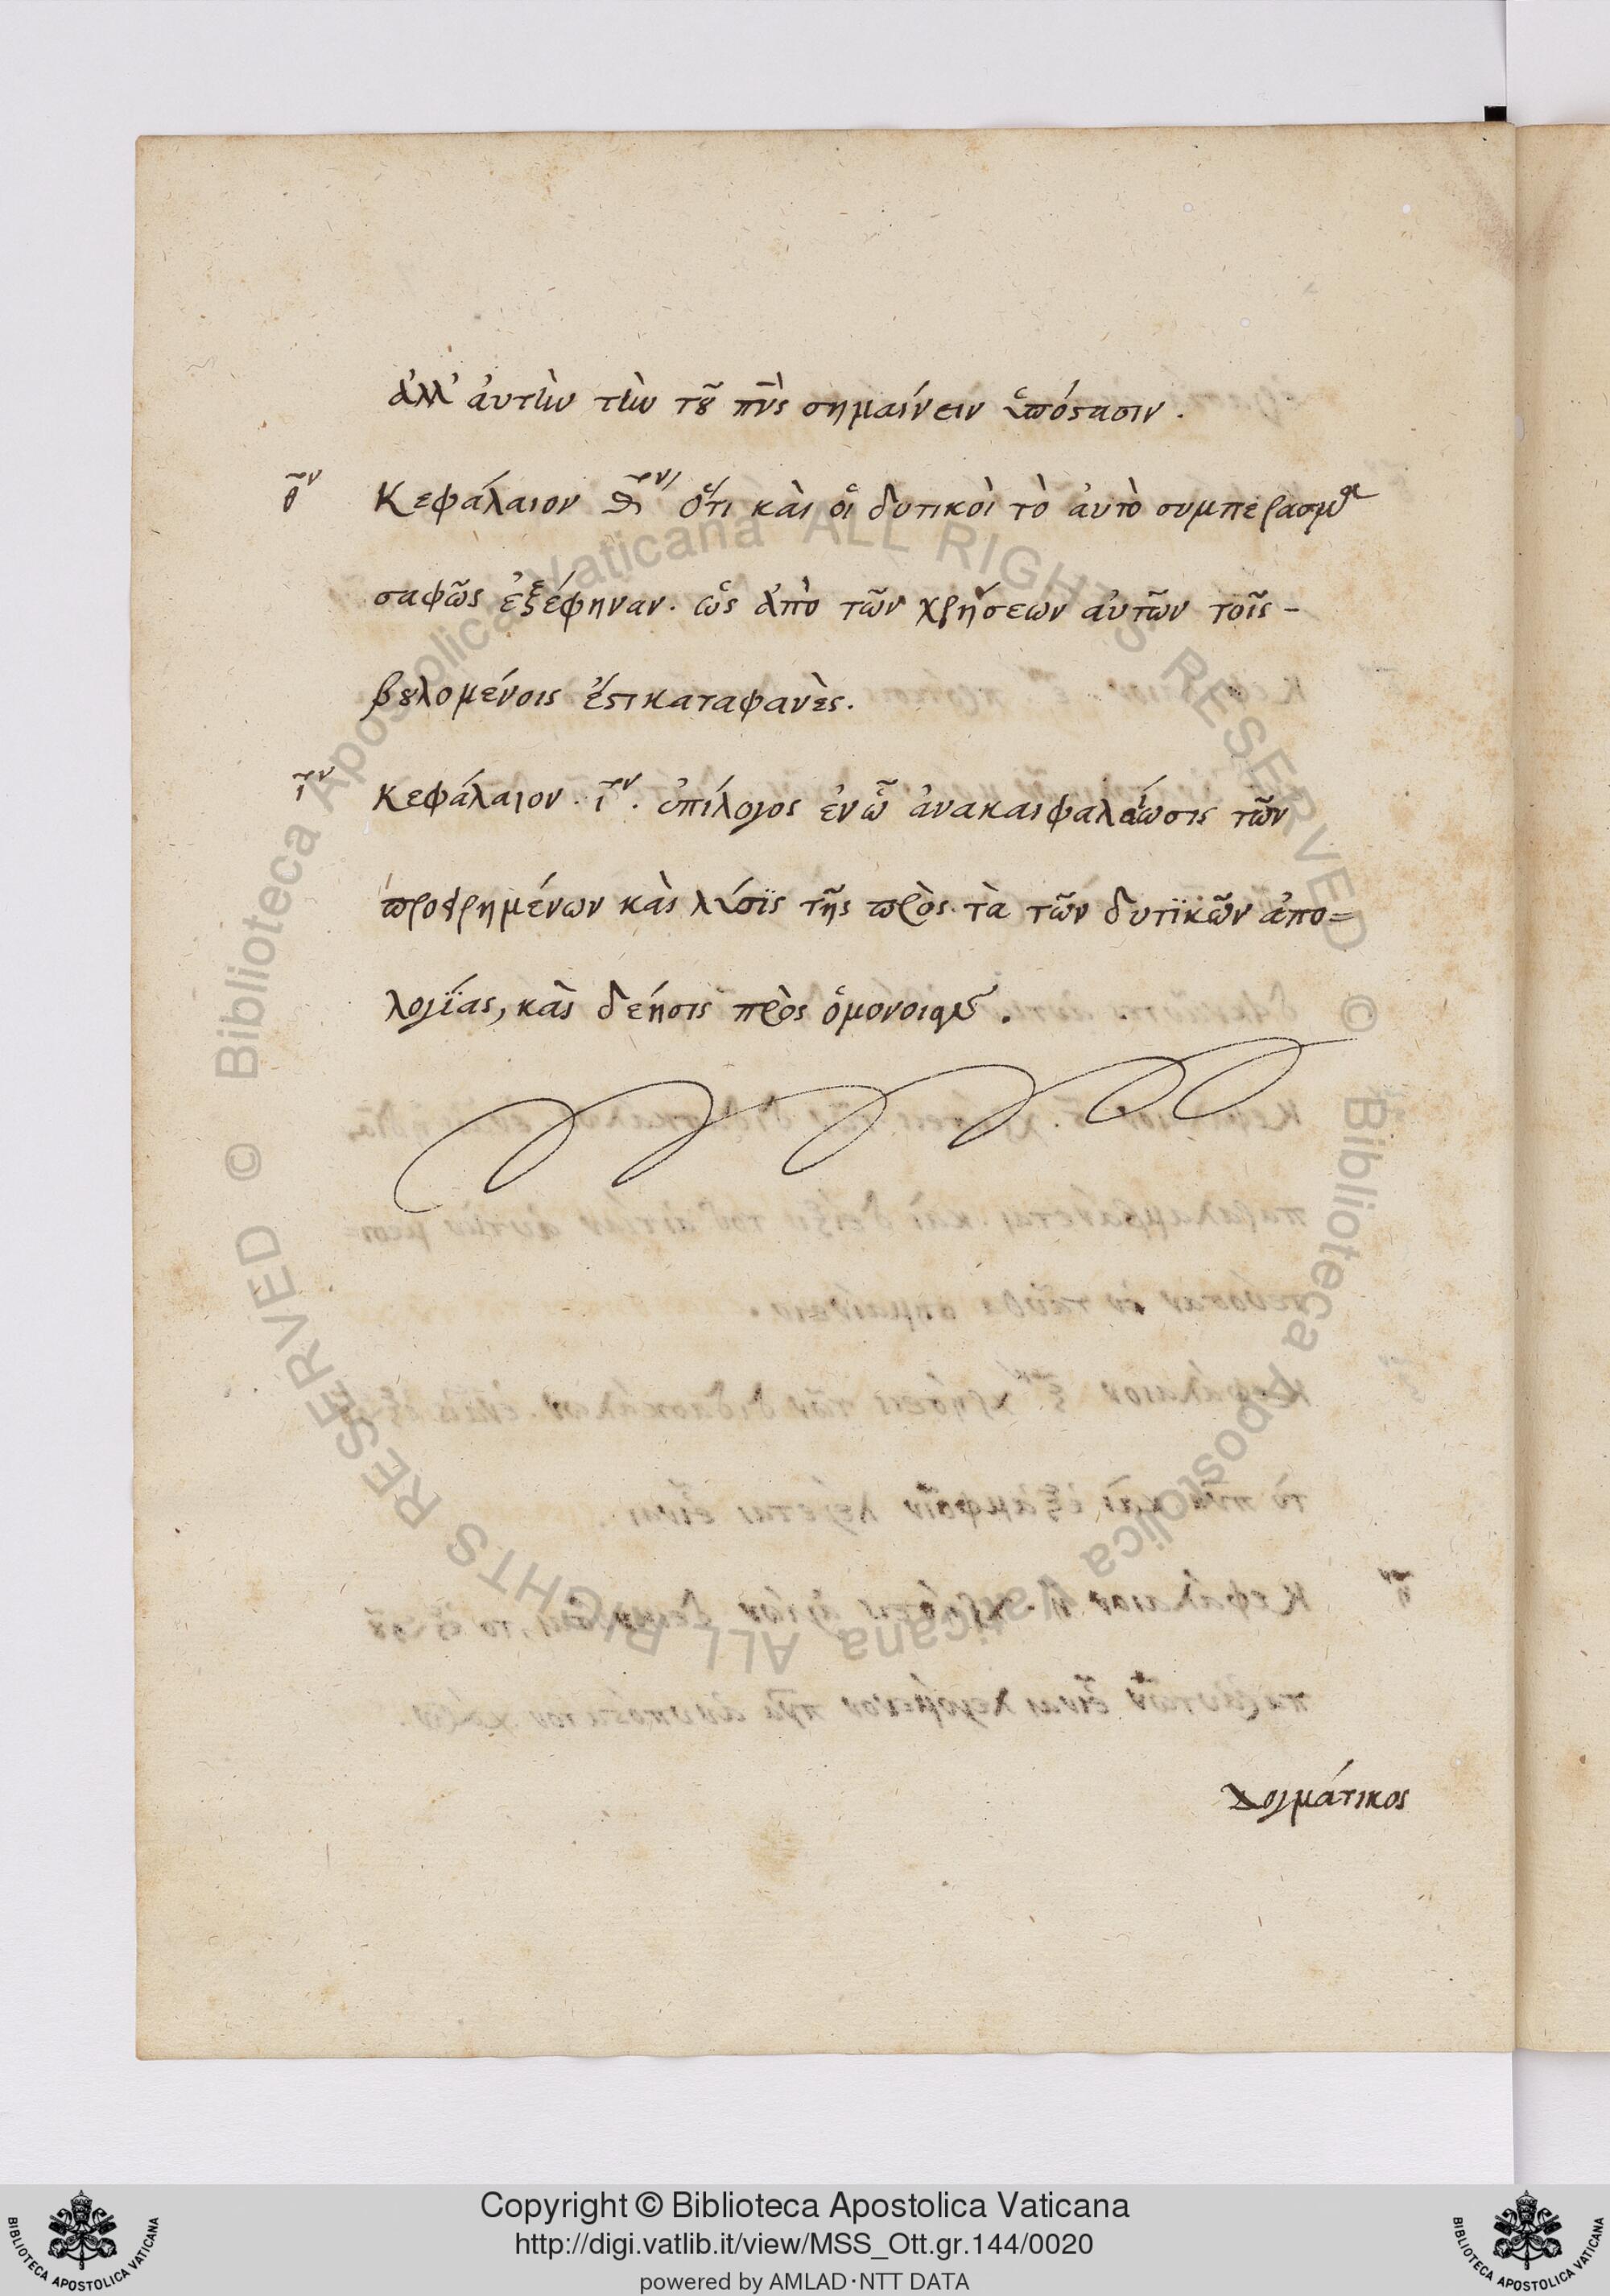 ἀλλ' ἀυτὴν τὴν τȣ͂ πν̅ὸς σημαίνειν ὑπόστασιν.
θ̅ον Κεφάλαιον θ̅ον ὅτι κὰι οἱ δυτικοὶ τὸ ἀυτὸ
σαφῶς ἐξέφηναν. ὡς ἀπὸ τῶν χρήσεων αὐτῶν τοῖς -
βȣλομένοις ἐστὶ καταφανὲς.
ι̅ον Κεφάλαιον. ι̅ον. ἐπίλογος ἐν ᾧ τῶν
προειρημένων κὰι λύσϊς τῆς πρὸς τὰ τῶν δυτϊκῶν ἀπο=
λογϊας, κὰι δέησις πρὸς ὁμόνοιαν.
Δογμάτικος
© Biblioteca Apostolica Vaticana ALL RIGHTS RESERVED © Biblioteca Apostolica Vaticana ALL RIGHTS RESERVED
Copyright © Biblioteca Apostolica Vaticana
http://digi.vatlib.it/view/MSS_Ott.gr.144/0020
powered by AMLAD·NTT DATA
BIBLIOTECA APOSTOLICA VATICANA
BIBLIOTECA APOSTOLICA VATICANA